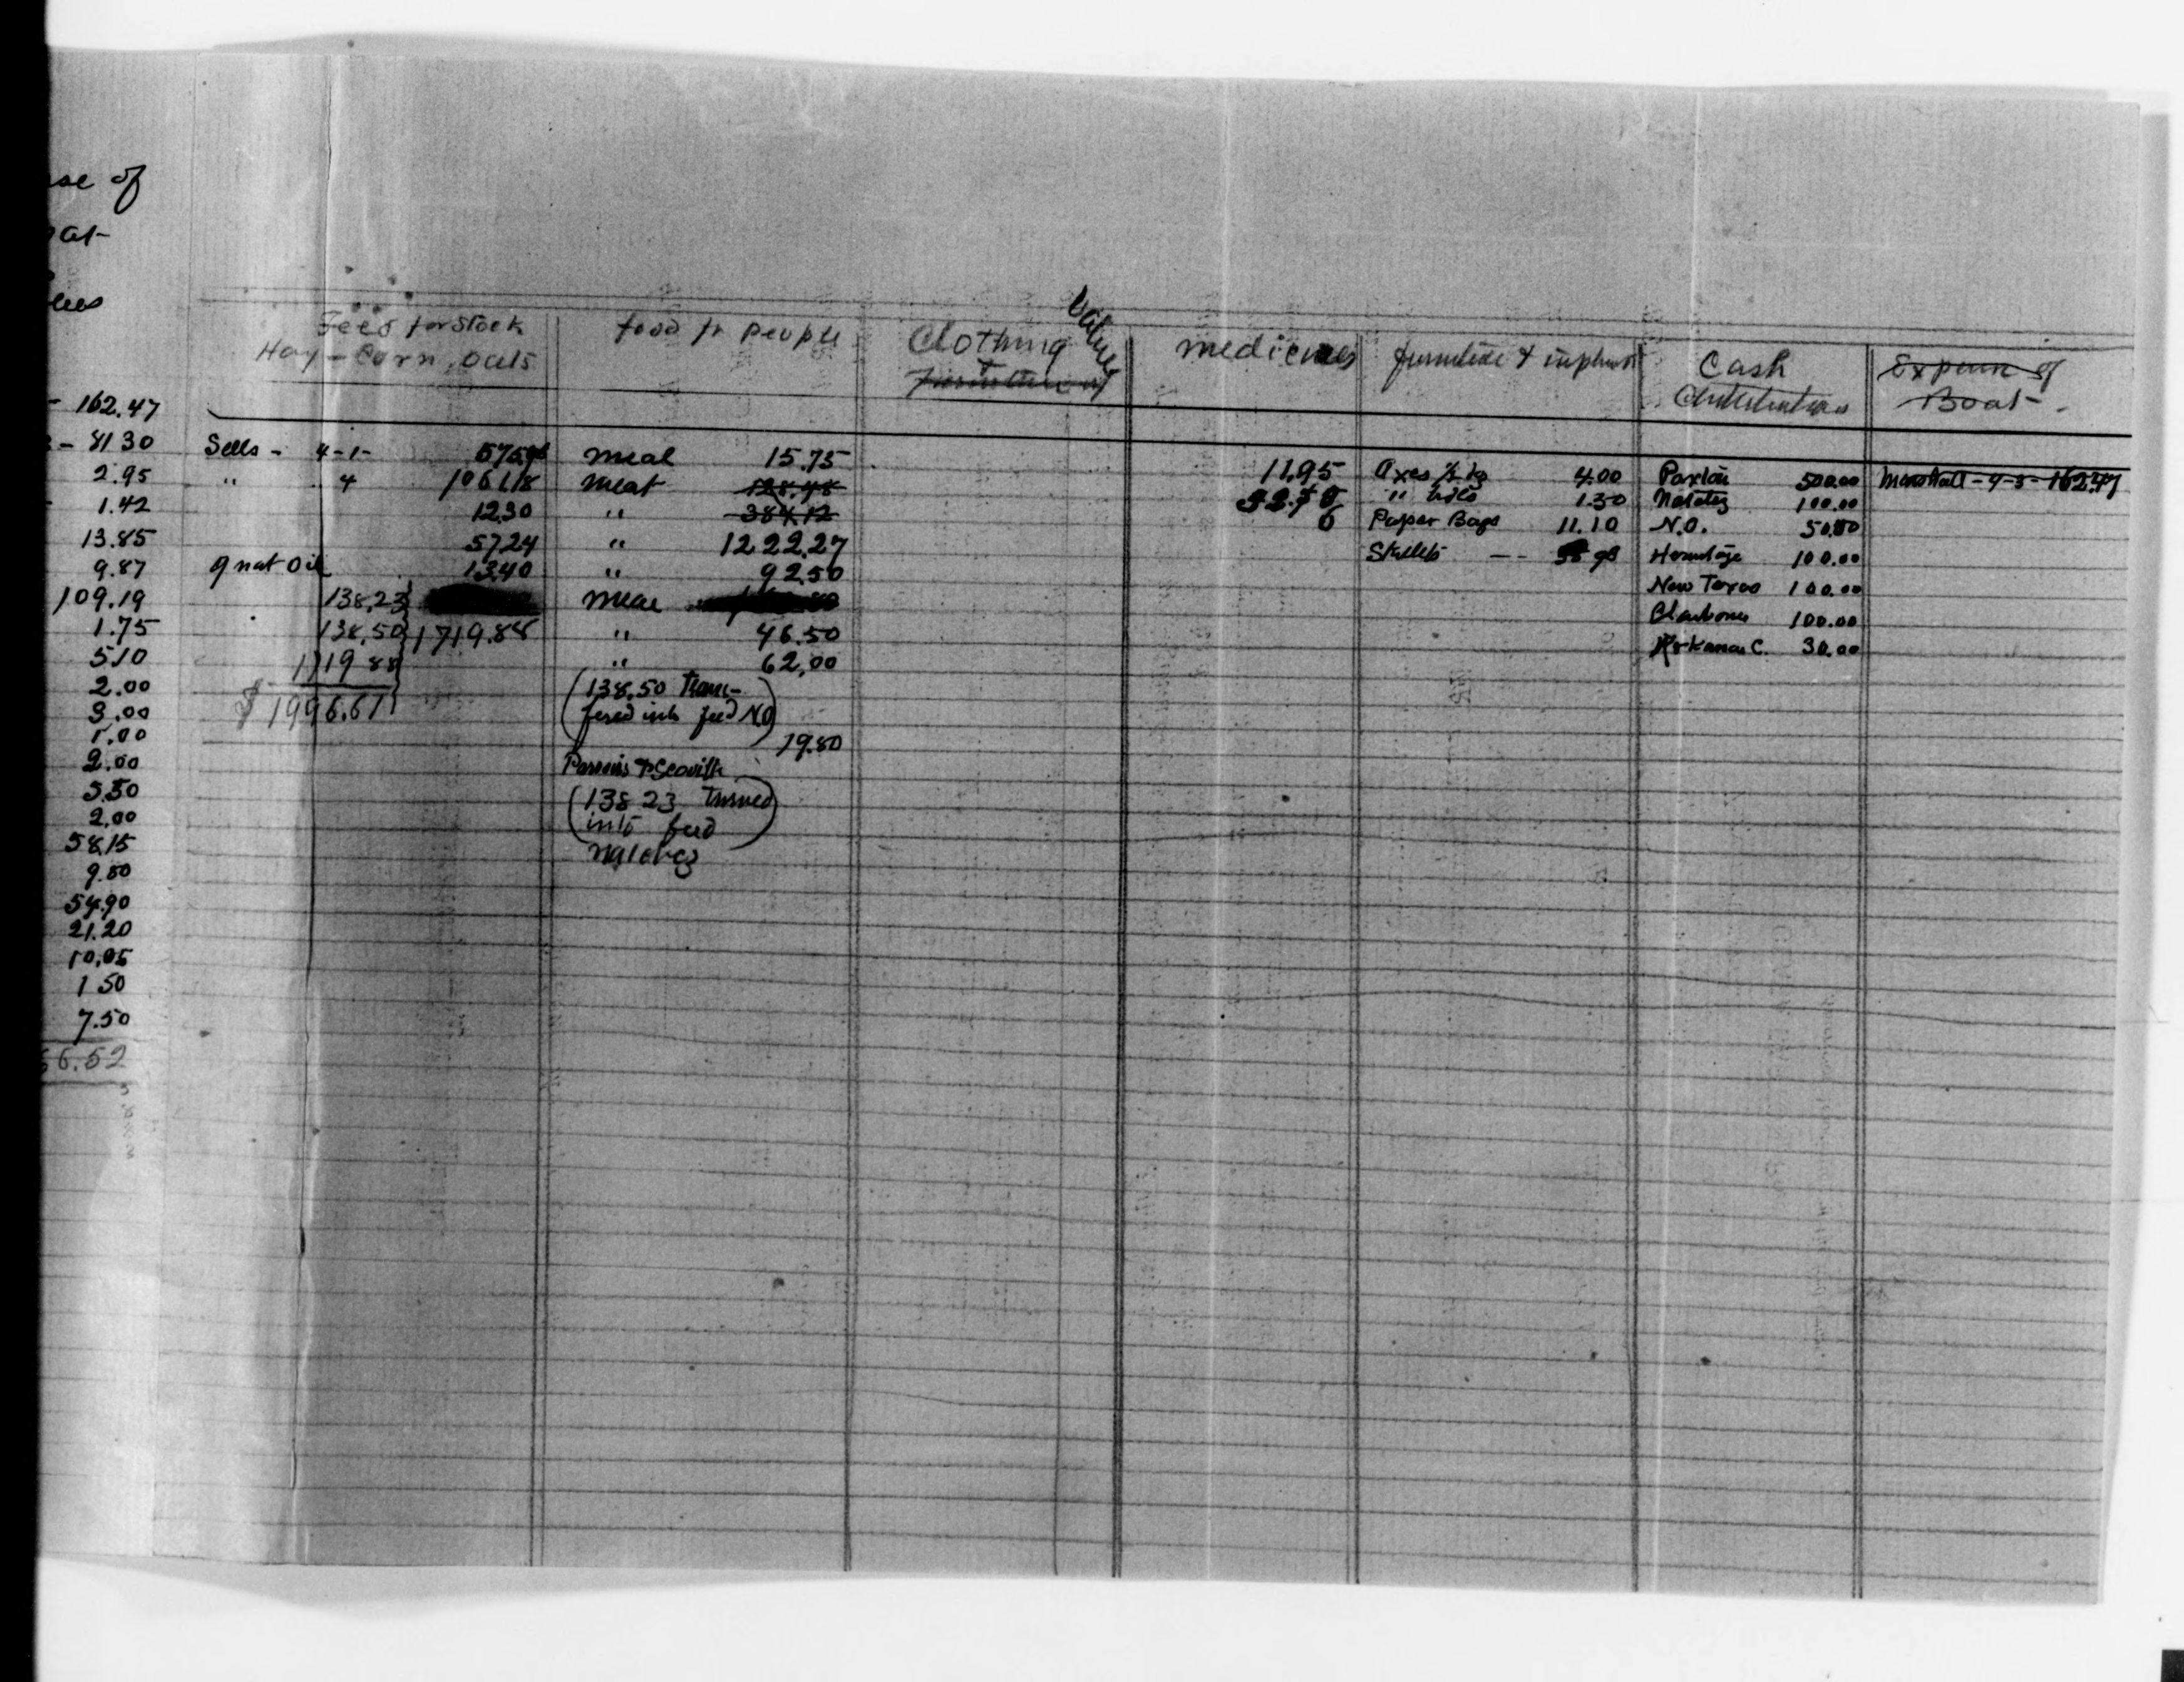 of
162.47
81 30
2.95
1.42
13.85
9.87
109.19
1.75
5 10
2.00
3.00
1.00
2.00
5.50
2.00
58.15
9.80
54.90
21.20
10.05
1 50
7.50
6.52
Feed for Stock
Hay - Corn, Oats
Sells - 4-1-
" 4 1061.18
12.30
57.24
gnat Oil 13.40
138.23
138.50 1719.88
1719 88
$ 1996.61
food for people
meal 15.75
meat 128.48
" 384.12
" 1222.27
" 92.50
meal
" 46.50
" 62.00
(138.50 Trans-
fered into feed N.O)
19.80
(138 23 Turned
into feed
Natchez
Clothing
+
Furniture
Value
medicines
11.95
furniture +
Axes 4.00
" 1.30
Paper Bags 11.10
Skillets
Cash
Paxton 500.00
Natchez 100.00
N.O. 50.00
Hermitage 100.00
New Texas 100.00
100.00
Arkansas C. 30.00
Expense of
Boat
Marshall - 4-3- 162.47